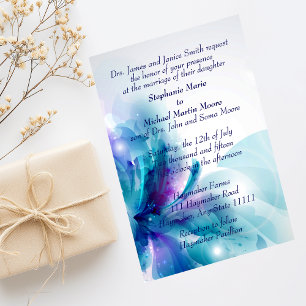 Drs. James and Janice Smith request
the honor of your presence
at the marriage of their daughter
Stephanie Marie
to
Michael Martin Moore
son of Drs. John and Soma Moore
Saturday, the 12th of July
thousand and fifteen
o'clock in the afternoon
Haymaker Farms
1111 Haymaker Road
Haymaker, AnyState 11111
Reception to follow
Haymaker Pavilion